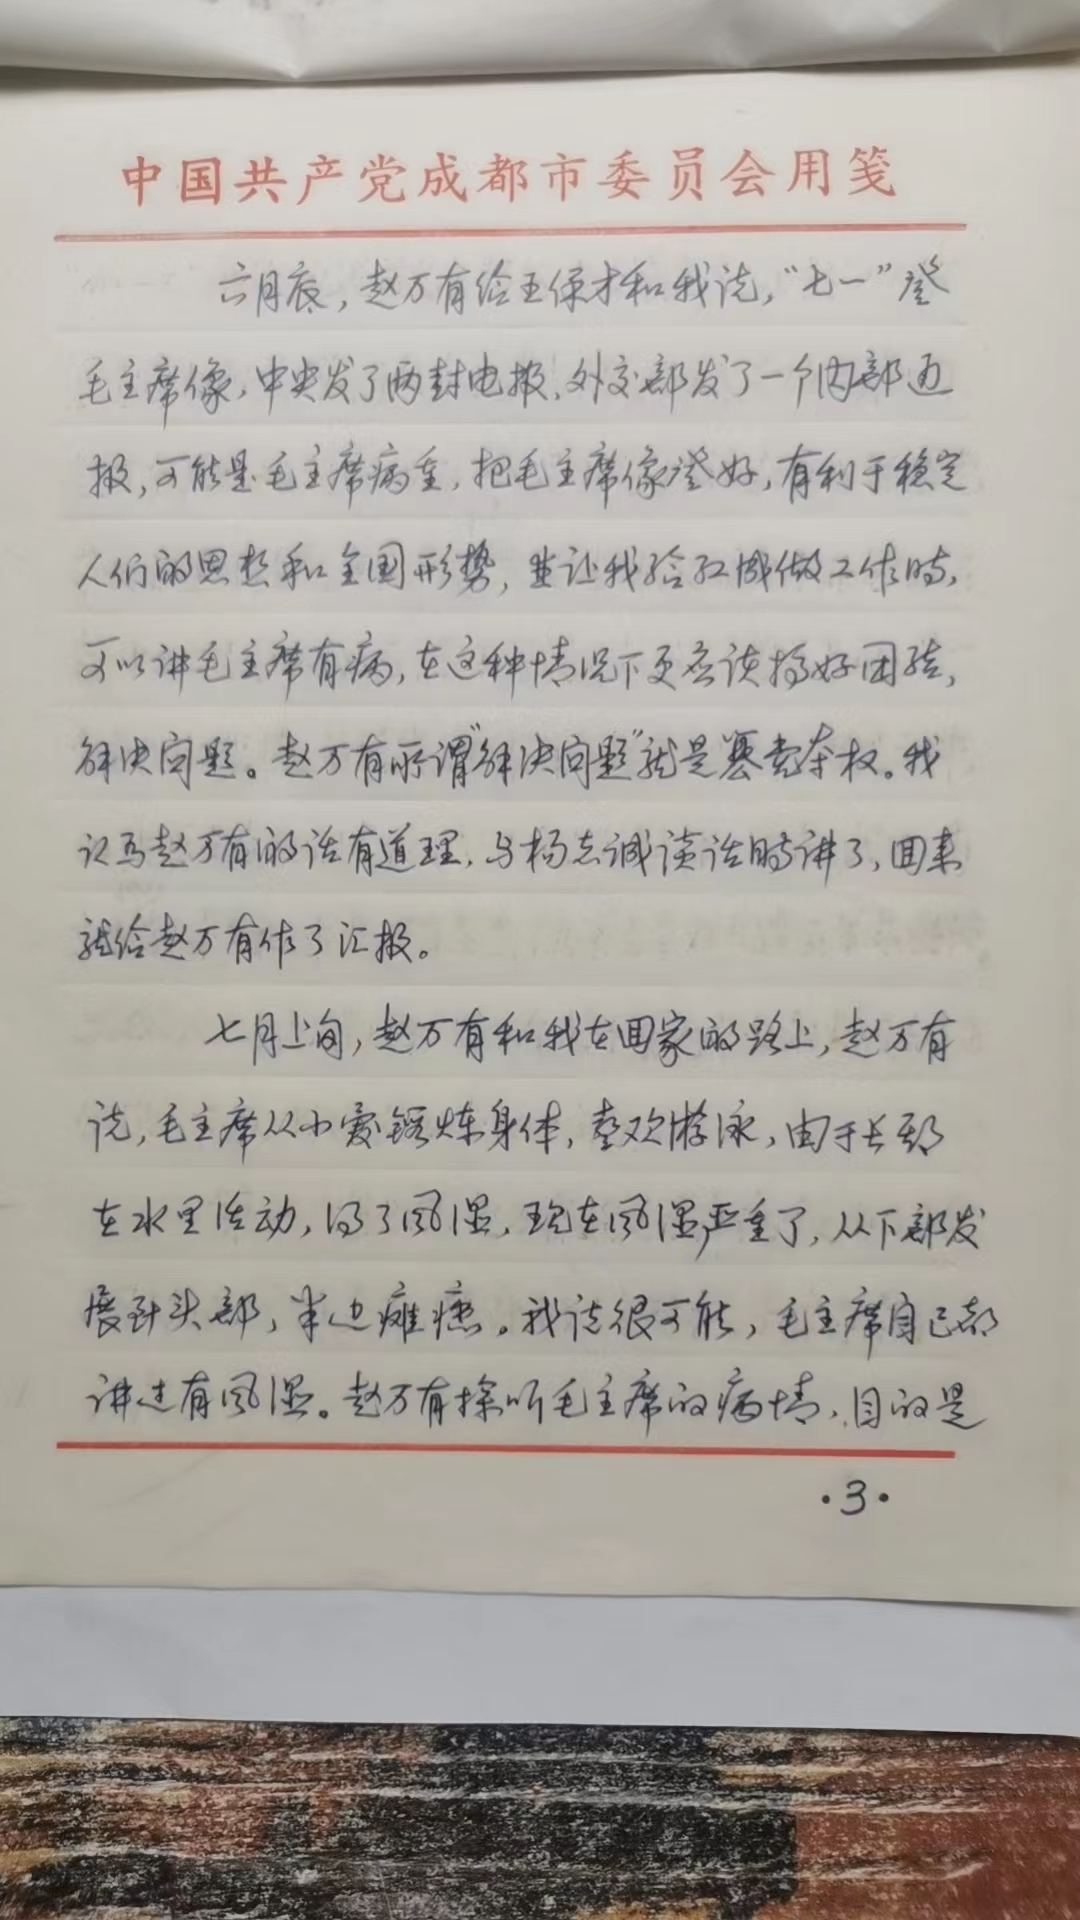 中国共产党成都市委员会用笺
六月底，赵万有给王保才和我说，“七一”登
毛主席像，中央发了两封电报，外交部发了一个内部通
报，可能是毛主席病重，把毛主席像登好，有利于稳定
人们的思想和全国形势，并让我给红城做工作时，
可以讲毛主席有病，在这种情况下更应该搞好团结，
解决问题。赵万有所谓“解决问题”就是篡党夺权。我
认为赵万有的话有道理，与杨志诚谈话时讲了，回来
就给赵万有作了汇报。
七月上旬，赵万有和我在回家的路上，赵万有
说，毛主席从小爱锻炼身体，喜欢游泳，由于长期
在水里活动，得了风湿，现在风湿严重了，从下部发
展到头部，半边瘫痪。我说很可能，毛主席自己都
讲过有风湿。赵万有探听毛主席的病情，目的是
·3·